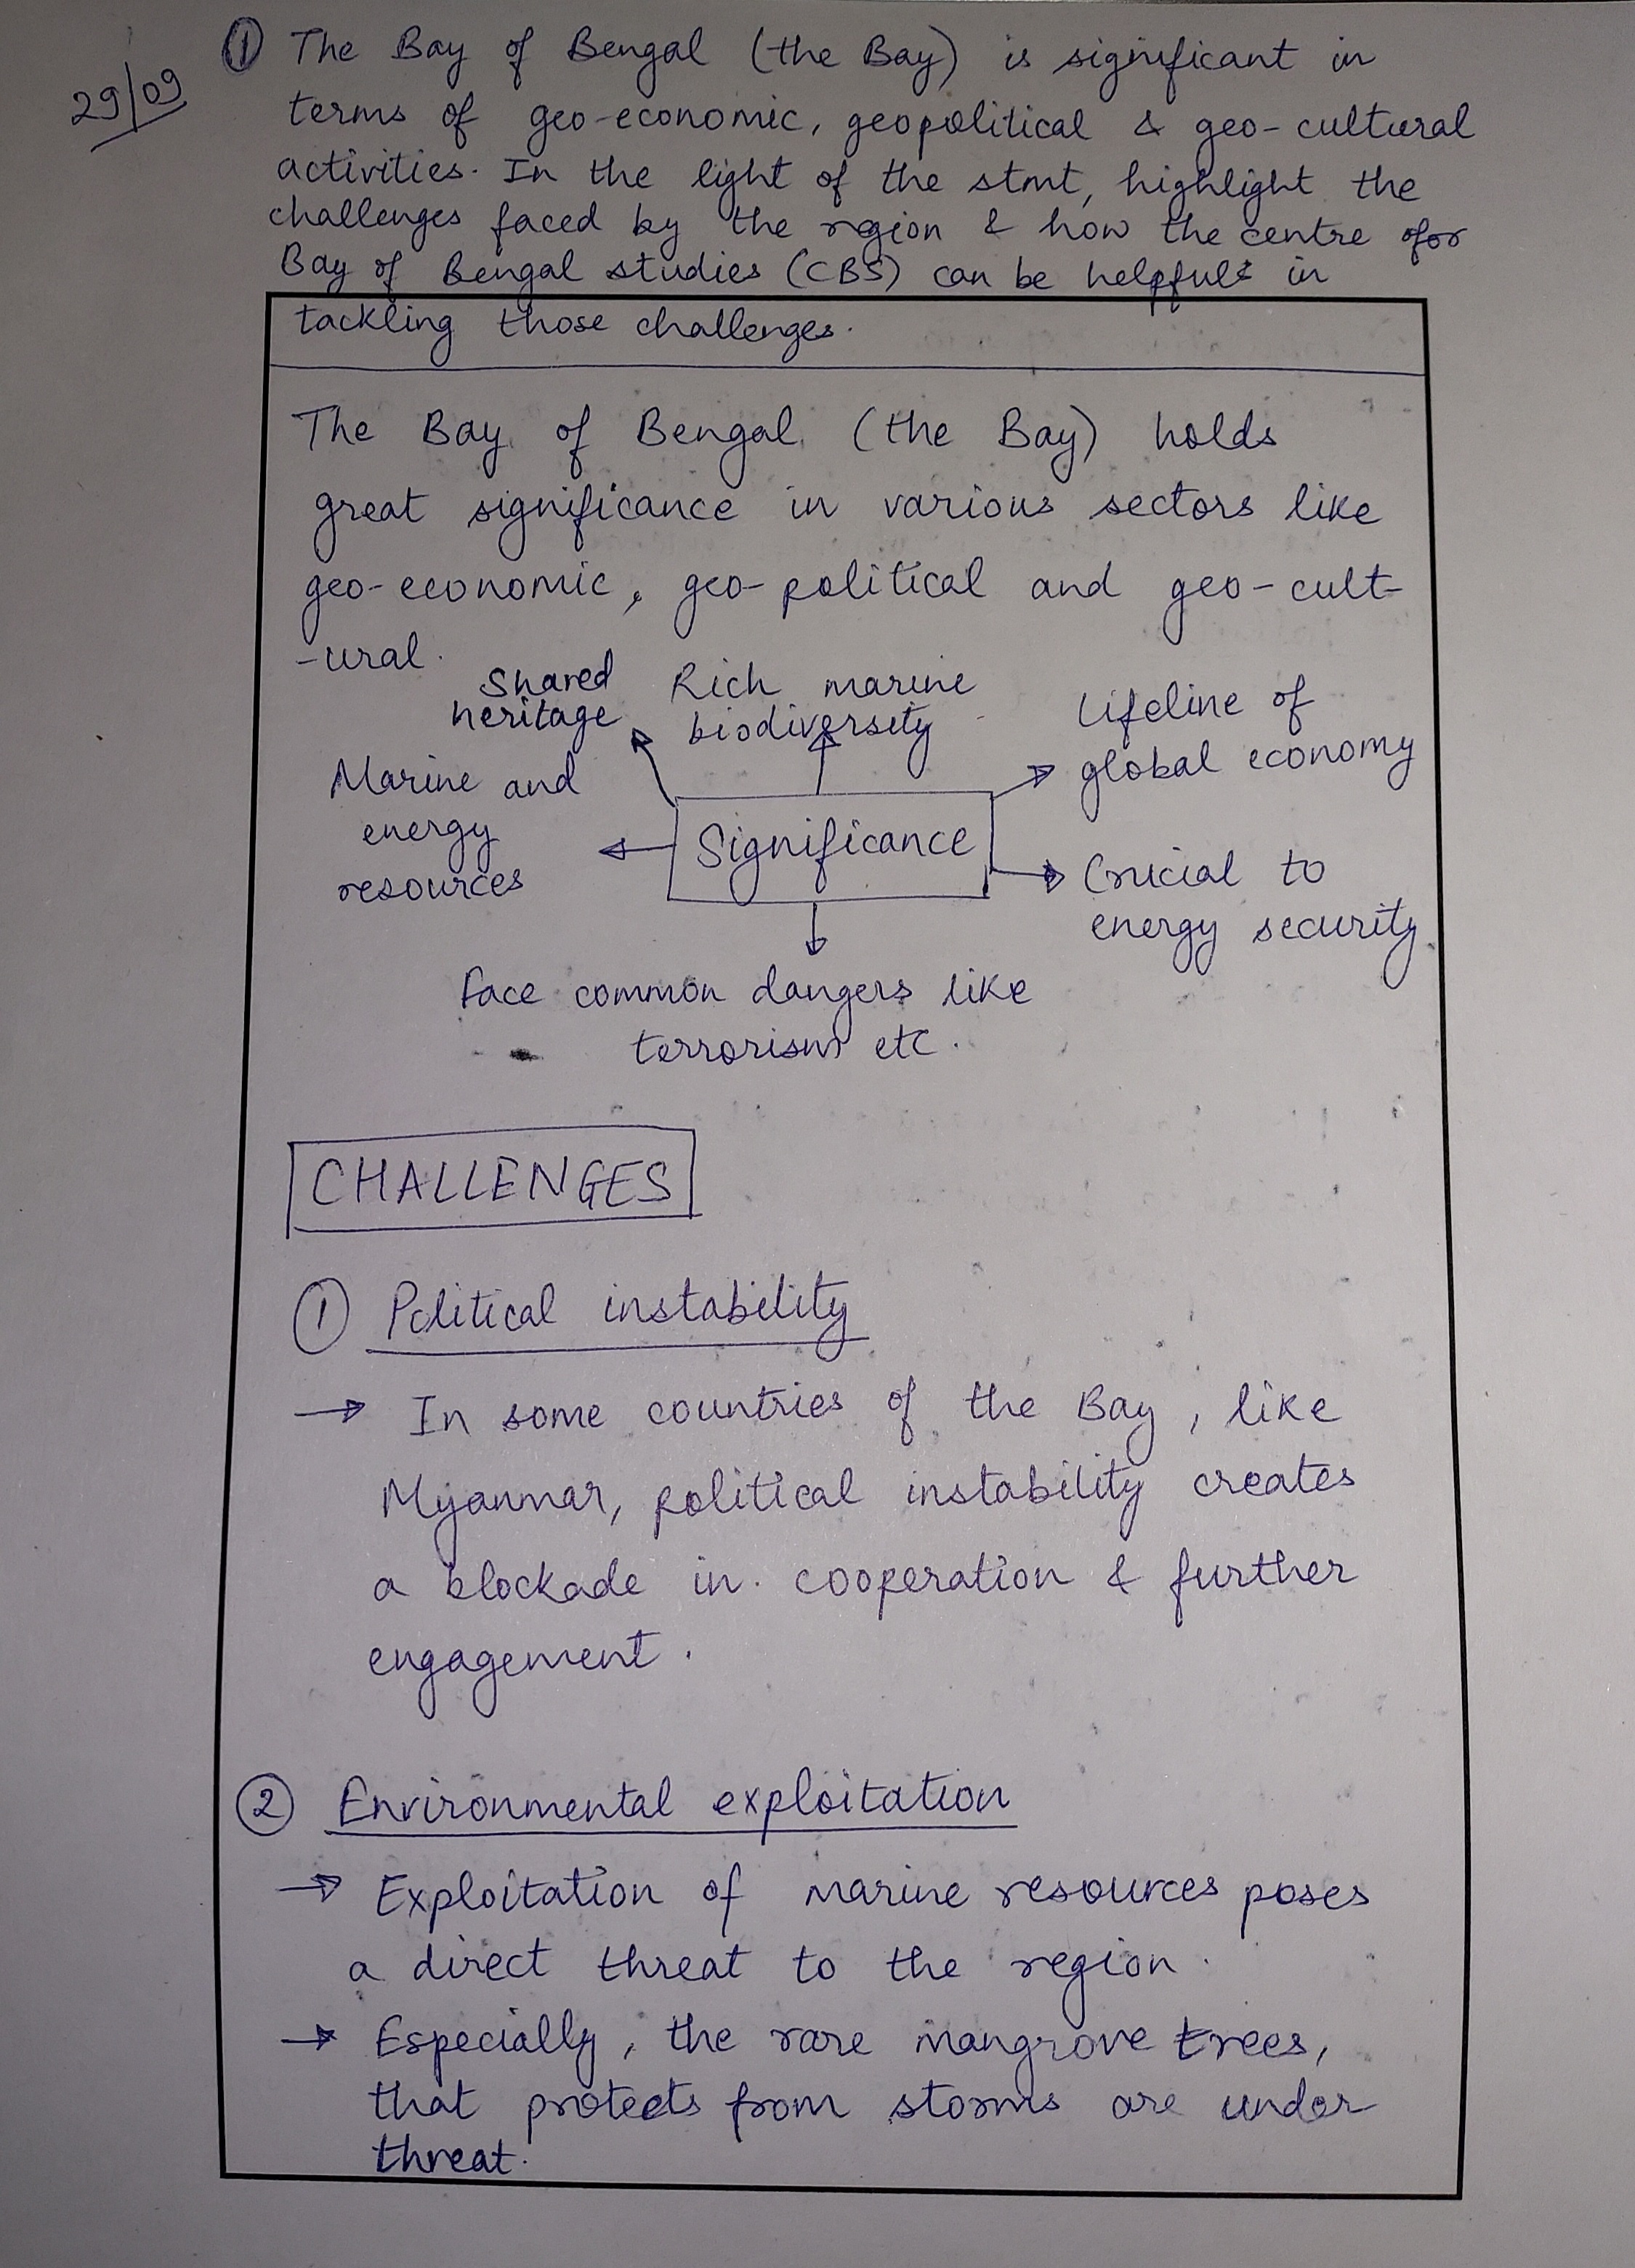 29/09
① The Bay of Bengal (the Bay) is significant in
terms of geo-economic, geopolitical & geo-cultural
activities. In the light of the stmt, highlight the
challenges faced by the region & how the centre for
Bay of Bengal studies (CBS) can be helpful in
tackling those challenges.
The Bay of Bengal (the Bay) holds
great significance in various sectors like
geo-economic, geo-political and geo-cult-
-ural.
Shared
heritage
Rich marine
biodiversity
Lifeline of
global economy
Marine and
energy
resources
Significance
Crucial to
energy security
Face common dangers like
terrorism etc.
CHALLENGES
① Political instability
→ In some countries of the Bay, like
Myanmar, political instability creates
a blockade in cooperation & further
engagement.
② Environmental exploitation
→ Exploitation of marine resources poses
a direct threat to the region.
→ Especially, the rare mangrove trees,
that protects from storms are under
threat.